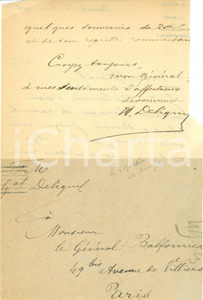 quelques souvenirs du 20e
et de son regretté commandant
Croyez toujours,
mon Général,
à mes sentiments d'affectueux
dévouement
H. Deligny
Mr
Gal Deligny
à
Monsieur
le Général Balfourier
49 bis Avenue de Villiers
Paris
iCharta